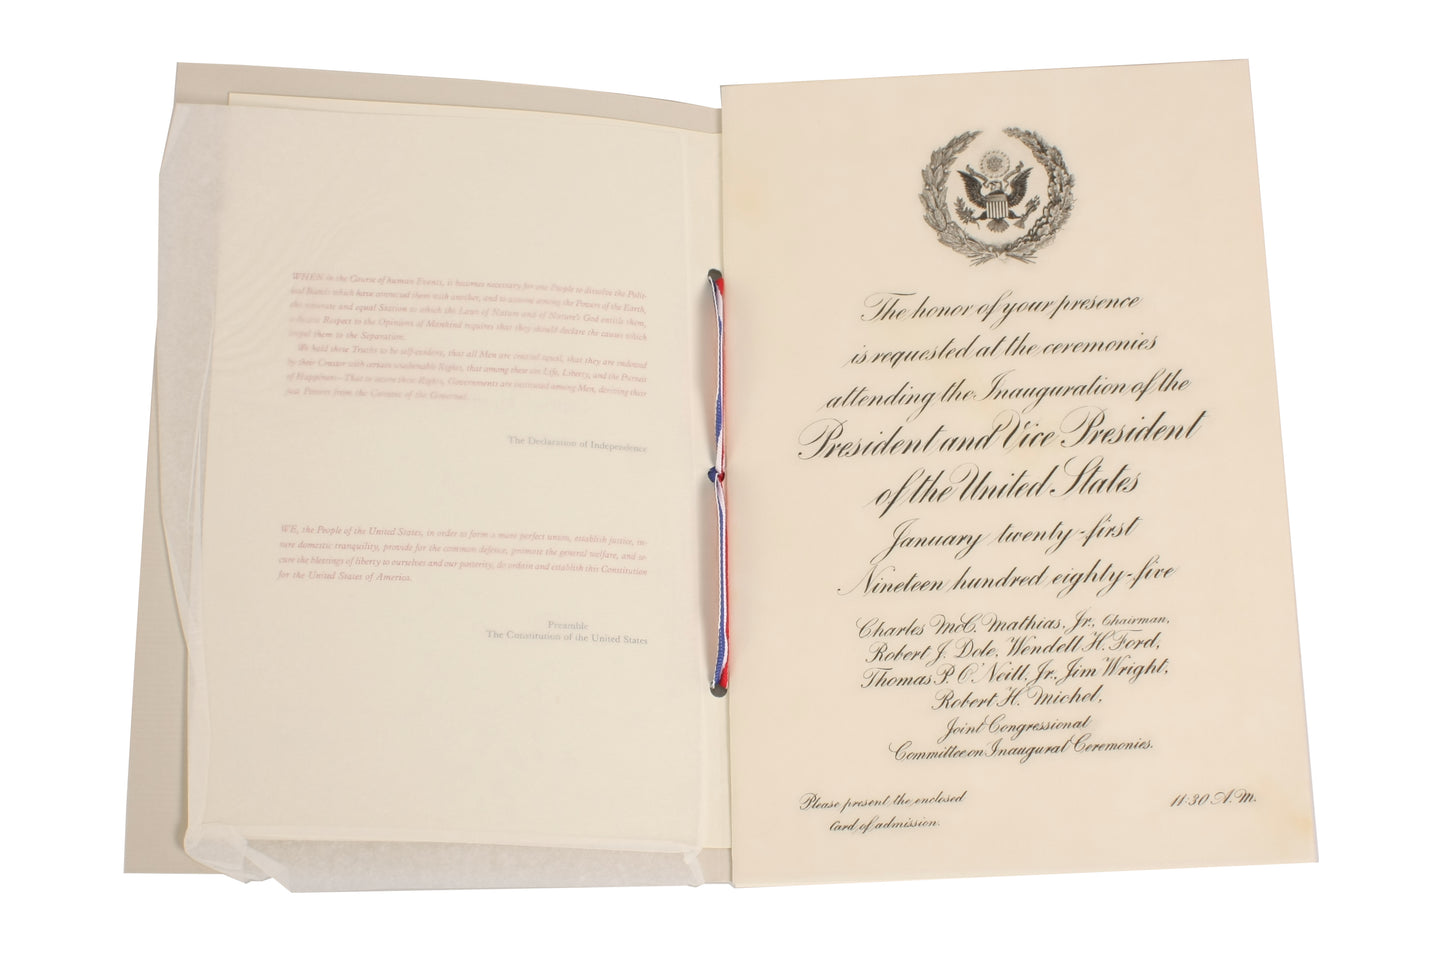 WHEN in the Course of human Events, it becomes necessary for one People to dissolve the Polit-
ical Bands which have connected them with another, and to assume among the Powers of the Earth,
the separate and equal Station to which the Laws of Nature and of Nature's God entitle them,
a decent Respect to the Opinions of Mankind requires that they should declare the causes which
impel them to the Separation.
We hold these Truths to be self-evident, that all Men are created equal, that they are endowed
by their Creator with certain unalienable Rights, that among these are Life, Liberty, and the Pursuit
of Happiness—That to secure these Rights, Governments are instituted among Men, deriving their
just Powers from the Consent of the Governed . . .
The Declaration of Independence
WE, the People of the United States, in order to form a more perfect union, establish justice, in-
sure domestic tranquility, provide for the common defence, promote the general welfare, and se-
cure the blessings of liberty to ourselves and our posterity, do ordain and establish this Constitution
for the United States of America.
Preamble
The Constitution of the United States
The honor of your presence
is requested at the ceremonies
attending the Inauguration of the
President and Vice President
of the United States
January twenty-first
Nineteen hundred eighty-five
Charles McC. Mathias, Jr., Chairman,
Robert J. Dole, Wendell H. Ford,
Thomas P. O'Neill, Jr., Jim Wright,
Robert H. Michel,
Joint Congressional
Committee on Inaugural Ceremonies.
Please present the enclosed
Card of admission.
11:30 A.M.